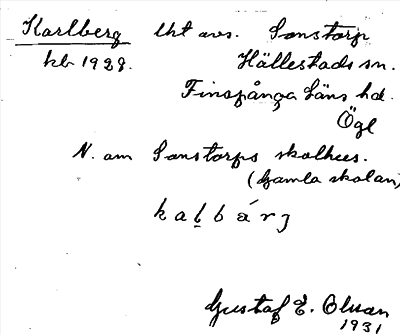 Karlberg lht avs. Sonstorp
kb 1928. Hällestads sn.
Finspånga Läns hd.
Ögl
N. om Sonstorps skolhus.
(Gamla skolan)
k a l b á r j
Gustaf E. Olsson
1931